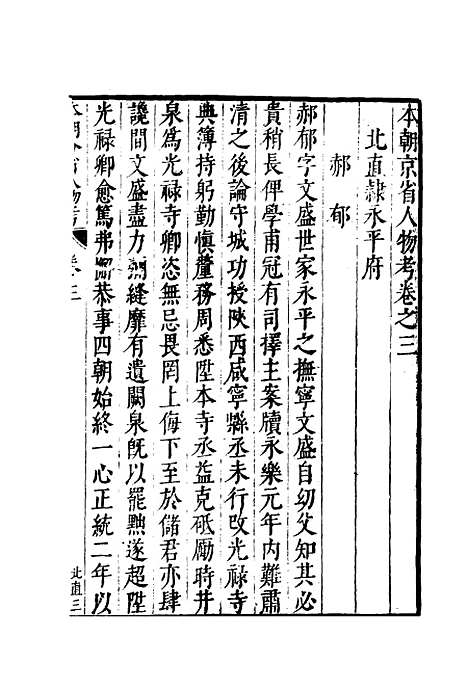 本朝京省人物考卷之三
北直隸永平府
郝郁
郝郁字文盛世家永平之撫寧文盛自幼父知其必
貴稍長俾學甫冠有司擇主案牘永樂元年內難肅
清之後論守城功授陜西咸寧縣丞未行改光祿寺
典簿持躬勤慎釐務周悉陞本寺丞益克砥勵時井
泉為光祿寺卿恣無忌畏罔上侮下至於儲君亦肆
讒間文盛盡力彌縫靡有遺闕泉既以罷黜遂超陞
光祿卿愈篤弗懈恭事四朝始終一心正統二年以
本朝京省人物考 卷三 北直三